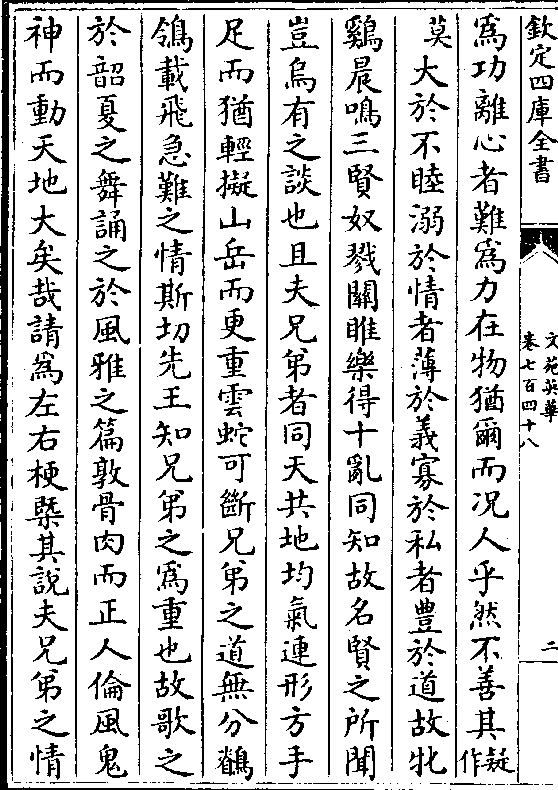 欽定四庫全書
文苑英華
卷七百四十八
二
爲功離心者難爲力在物猶爾而况人乎然不善其疑作
莫大於不睦溺於情者薄於義寡於私者豊於道故牝
鷄晨鳴三賢奴戮關睢樂得十亂同知故名賢之所聞
豈烏有之談也且夫兄弟者同天共地均氣連形方手
足而猶輕擬山岳而更重雲蛇可斷兄弟之道無分鶺
鴒載飛急難之情斯切先王知兄弟之爲重也故歌之
於韶夏之舞誦之於風雅之篇敦骨肉而正人倫風鬼
神而動天地大矣哉請爲左右梗槩其說夫兄弟之情